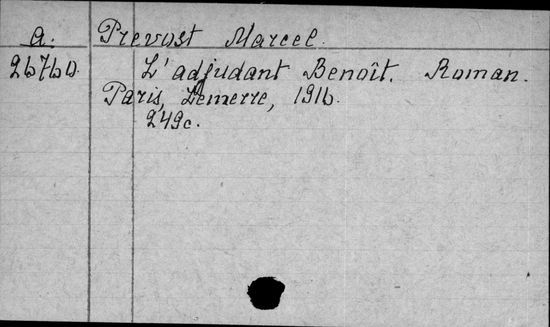 a. Prevost Marcel.
26760. L'adjudant Benoît. Roman.
Paris, Lemerre, 1916.
249c.